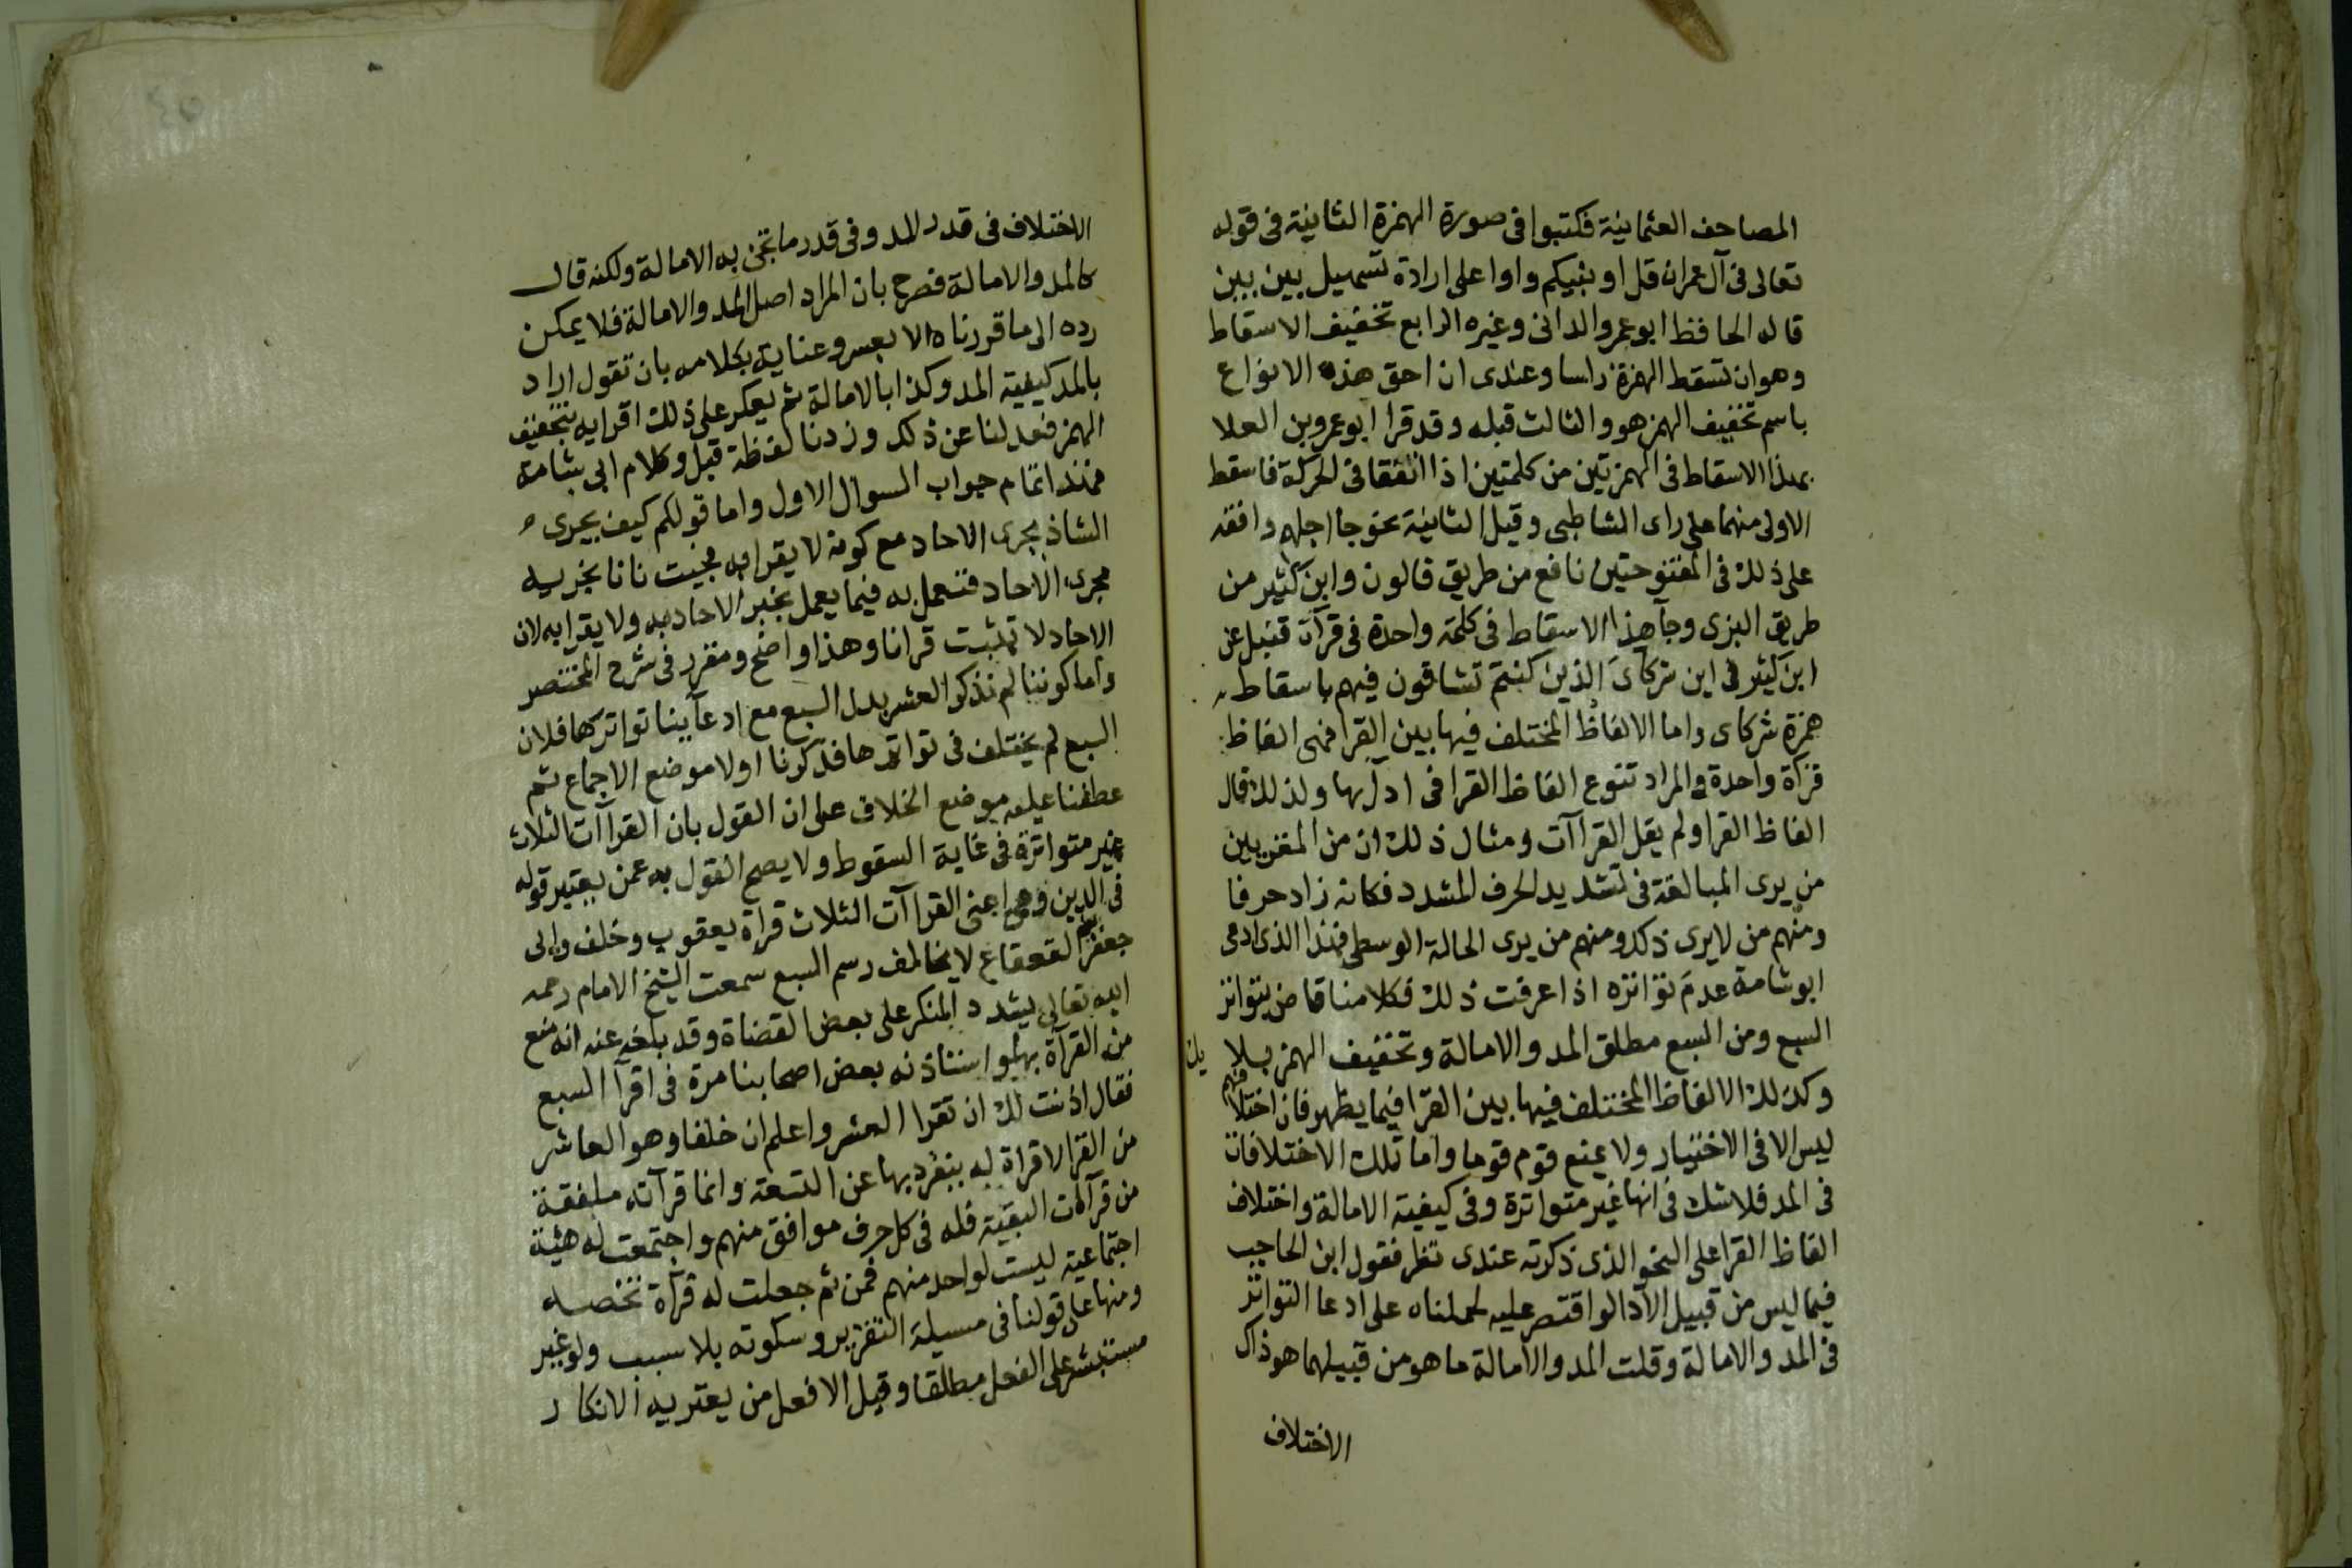 المصاحف العثمانية فكتبوا في صورة الهمزة الثانية في قوله
تعالى في آل عمران قل اونبيكم واوا على ارادة تسهيل بين بين
قاله الحافظ ابو عمرو الداني وغيره الرابع تخفيف الاسقاط
وهو ان تسقط الهمزة راسا وعندى ان احق هذه الانواع
باسم تخفيف الهمز هو والثالث قبله وقد قرا ابو عمرو بن العلا
بهذا الاسقاط في الهمزتين من كلمتين اذا اتفقا في الحركة فاسقط
الاولى منهما على راى الشاطبى وقيل الثانية نحو جا اجلهم وافقه
على ذلك في المفتوحتين نافع من طريق قالون وابن كثير من
طريق البزى وجآ هذا الاسقاط في كلمة واحدة في قرآة قنبل عن
ابن كثير في اين شركآىَ الذين كنتم تشاقون فيهم باسقاط
همزة شركاى واما الالفاظ المختلف فيها بين القرا فهى الفاظ
قرآة واحدة والمراد تنوع الفاظ القرا في ادآئها ولذلك قال
الفاظ القرا ولم يقل القراآت ومثال ذلك ان من المقريين
من يرى المبالغة في تشديد الحرف المشدد فكانه زاد حرفا
ومنهم من لا يرى ذلك ومنهم من يرى الحالة الوسطى فهذا الذى ادعى
ابو شامة عدم تواتره اذا عرفت ذلك فكلامنا قاض بتواتر
السبع ومن السبع مطلق المد والامالة وتخفيف الهمز بلا
وكذلك الالفاظ المختلف فيها بين القرا فيما يظهر فان اختلافهم
ليس الا في الاختيار ولا يمنع قوم قوما واما تلك الاختلافات
في المد فلا شك في انها غير متواترة وفي كيفية الامالة واختلاف
الفاظ القرا على النحو الذى ذكرته عندى نظر فقول ابن الحاجب
فيما ليس من قبيل الآدا لو اقتصر عليه لحملناه على ادعا التواتر
في المد والامالة وقلت المد والامالة ما هو من قبيلهما هو ذاك
الاختلاف
الاختلاف في قدر المد وفي قدر ما تجئ به الامالة ولكنه قال
كالمد والامالة فصرح بان المراد اصل المد والامالة فلا يمكن
رده الى ما قررناه الا بعسر وعناية بكلامه بان تقول اراد
بالمد كيفية المد وكذا بالامالة ثم يعكر على ذلك اقرانه بتخفيف
الهمز فعدلنا عن ذلك وزدنا لفظة قيل وكلام ابى شامة
فهذا تمام جواب السوال الاول واما قولكم كيف يجرى
الشاذ مجرى الاحاد مع كونه لا يقرا به فجيت نانا نجريه
مجرى الاحاد فنعمل به فيما يعمل بخبر الاحاد به ولا يقرا به لان
الاحاد لا تثبت قرانا وهذا واضح ومقرر في شرح المختصر
واما كوننا لم نذكر العشر بدل السبع مع ادعآينا تواترها فلان
السبع لم يختلف في تواترها فذكرنا اولا موضع الاجماع ثم
عطفنا عليه موضع الخلاف على ان القول بان القراآت الثلاث
غير متواترة في غاية السقوط ولا يصح القول به عمن يعتبر قوله
في الدين وهى اعنى القراآت الثلاث قراة يعقوب وخلف وابى
جعفر بن القعقاع لا يخالف رسم السبع سمعت الشيخ الامام رحمه
الله تعالى يشدد المنكر على بعض القضاة وقد بلغه عنه انه منع
من القرآة بها واستاذنه بعض اصحابنا مرة في اقرآ السبع
فقال اذنت لك ان تقرا العشر واعلم ان خلفا وهو العاشر
من القرا لا قراة له ينفرد بها عن التسعة وانما قرآته ملفقة
من قرآات البقية فله في كل حرف موافق منهم واجتمعت له هيئة
اجتماعية ليست لواحد منهم فمن ثم جعلت له قرآة تخصه
ومنها على قولنا في مسيلة التقرير وسكوته بلا سبب ولو غير
مستبشر على الفعل مطلقا وقيل الا فعل من يعتريه الانكار